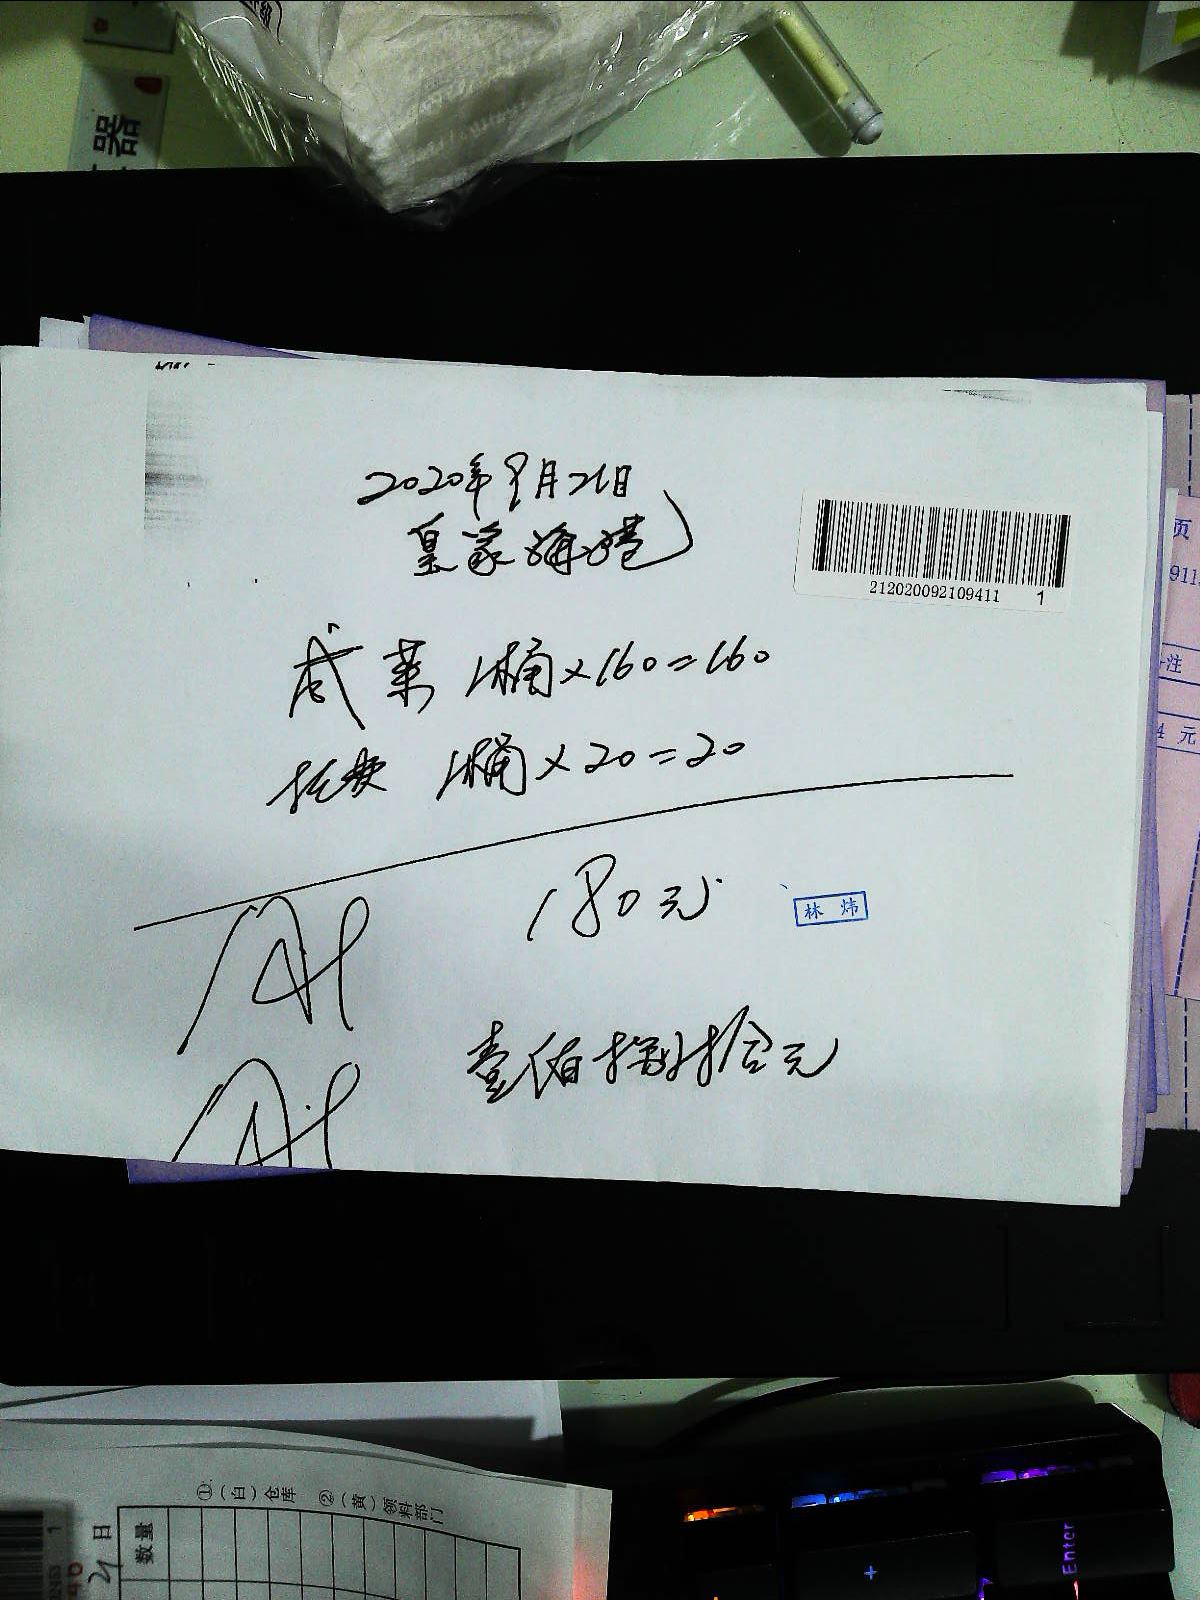 器
2020年9月21日
皇家海港
212020092109411 1
咸菜 1桶×160=160
1桶×20=20
180元
林炜
壹佰捌拾元
页
911
注
4 元
①(白)仓库 ②(黄)领料部门
日
数量
21
1
+
Enter